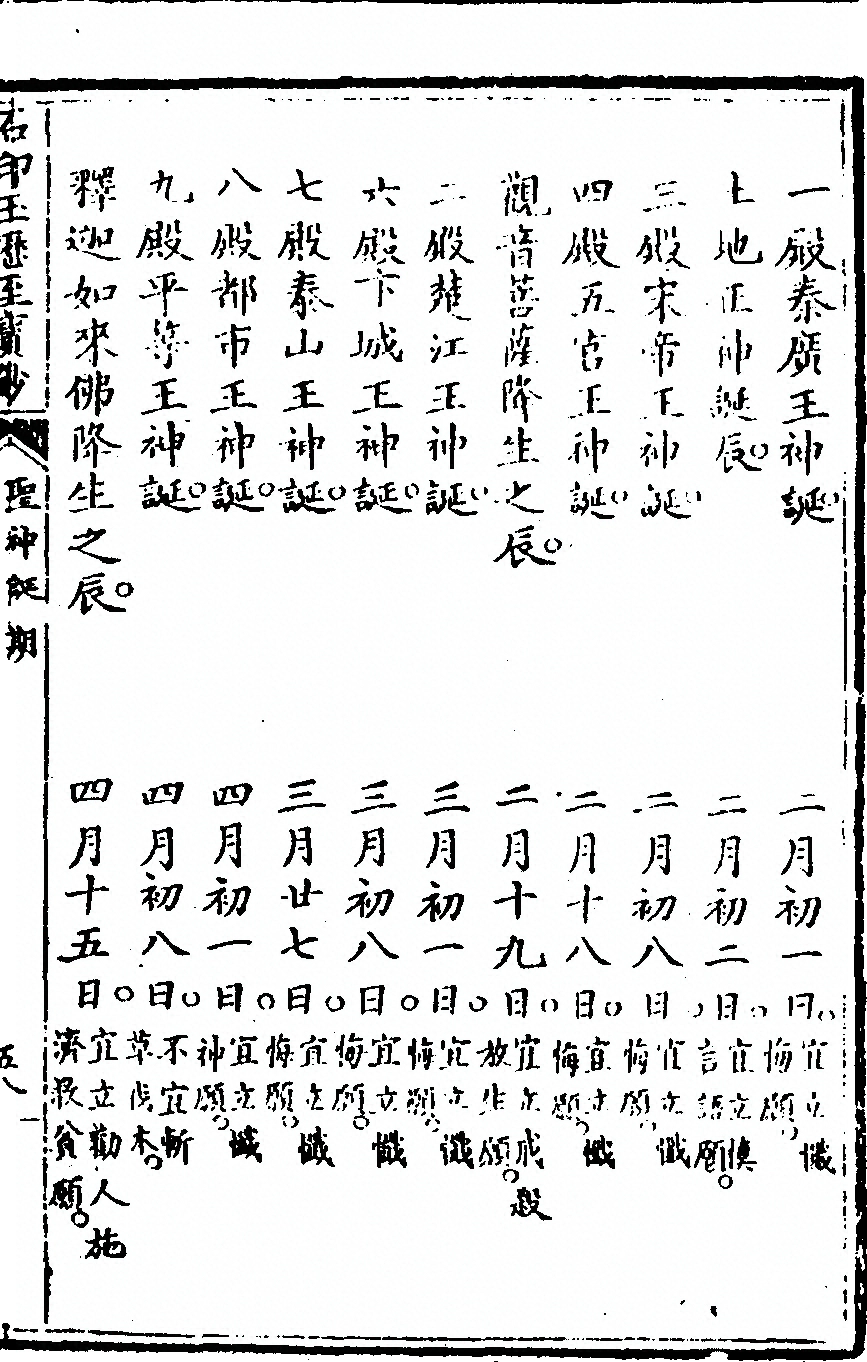 一殿秦廣王神誕 二月初一日。宜立懺悔願。
土地正神誕辰。二月初二日。宜立慎言語願。
三殿宋帝王神誕。二月初八日。宜立懺悔願。
四殿五官王神誕。二月十八日。宜立懺悔願。
觀音菩薩降生之辰。二月十九日。宜立戒殺放生願。
二殿楚江王神誕。三月初一日。宜立懺悔願。
六殿卞城王神誕。三月初八日。宜立懺悔願。
七殿泰山王神誕。三月廿七日。宜立懺悔願。
八殿都市王神誕。四月初一日。宜立懺神願。
九殿平等王神誕。四月初八日。不宜斬草伐木。
釋迦如來佛降生之辰。四月十五日。宜立勸人施濟救貧願。
石印玉歷至寶鈔 聖神誕期 五八